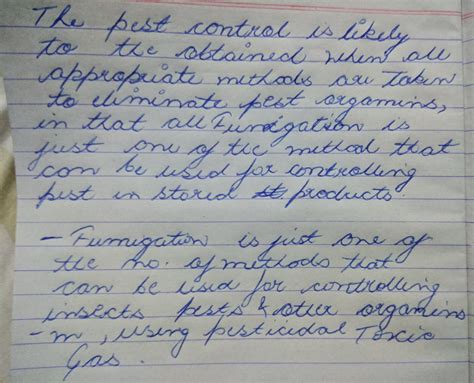 The pest control is likely
to the obtained when all
appropriate methods are taken
to eliminate pest orgamins,
in that all Fumigation is
just one of the method that
can be used for controlling
pest in stored products.
- Fumigation is just one of
the no. of methods that
can be used for controlling
insects pests & other orgamins
- m, using pesticidal Toxic
Gas.